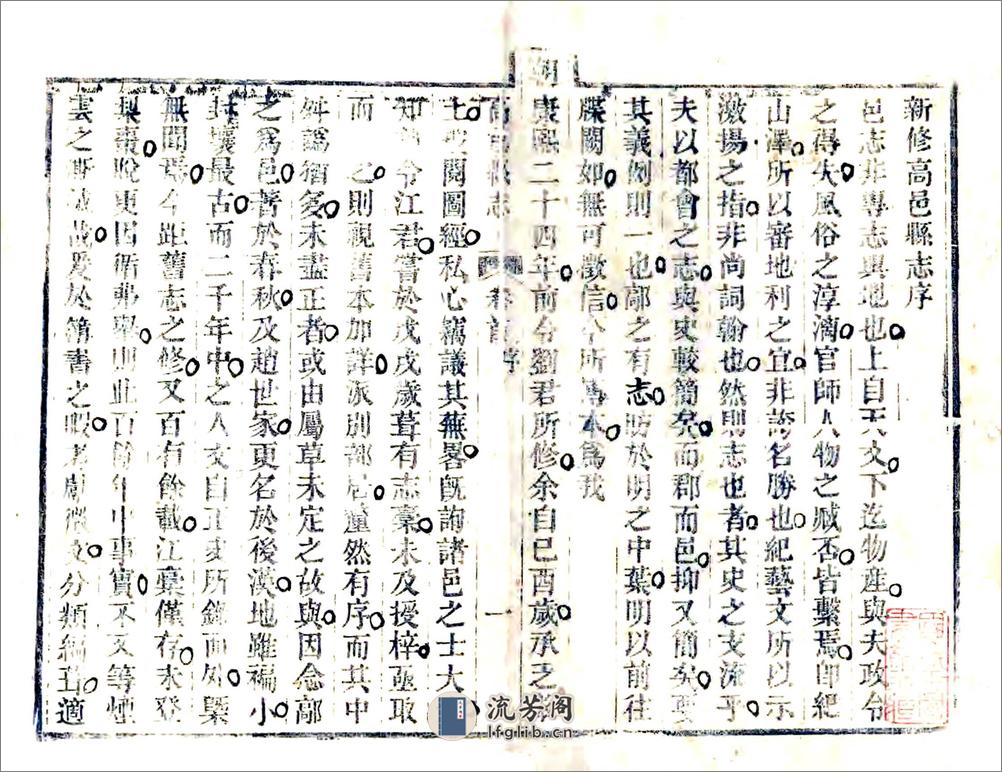 新修高邑縣志序
邑志非專志輿地也上自天文下迄物產與夫政令
之得失風俗之淳漓官師人物之臧否皆繫焉即紀
山澤所以審地利之宜非誇名勝也紀藝文所以示
激揚之指非尚詞翰也然則志也者其史之支流乎
夫以都會之志與史較簡矣而郡而邑抑又簡矣要
其義例則一也鄗之有志昉於明之中葉明以前往
牒闕如無可徵信今所傳本為我
朝康熙二十四年前令劉君所修余自己酉歲承乏
高邑縣志 卷首 序 一
土 閱圖經私心竊議其蕪畧既詢諸邑之士大
知 令江君嘗於戊戌歲葺有志藁未及授梓亟取
而 之則視舊本加詳派別部居釐然有序而其中
舛譌猶多未盡正者或由屬草未定之故與因念鄗
之為邑著於春秋及趙世家更名於後漢地雖褊小
封壤最古而二千年中之人文自正史所錄而外槩
無聞焉今距舊志之修又百有餘載江藁僅存未登
棗梨脫更因循弗舉則此百餘年中事實不又等煙
雲之 滅哉爰於簿書之暇考獻徵文分類編葺適
流芳阁
lfglib.cn